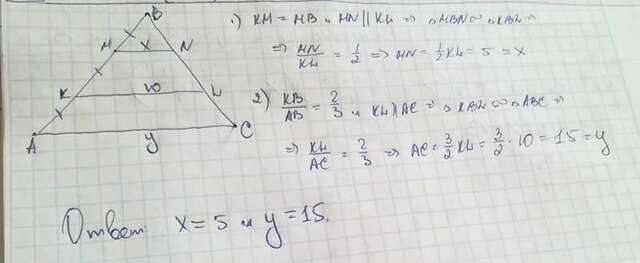 B
M x N
K 10 L
A y C
1) KM = MB и MN || KL ⇒ △MBN ∾ △KBL ⇒
⇒ MN/KL = 1/2 ⇒ MN = 1/2 KL = 5 = x
2) KB/AB = 2/3 и KL || AC ⇒ △KBL ∾ △ABC ⇒
⇒ KL/AC = 2/3 ⇒ AC = 3/2 KL = 3/2 · 10 = 15 = y
Ответ x = 5 и y = 15.